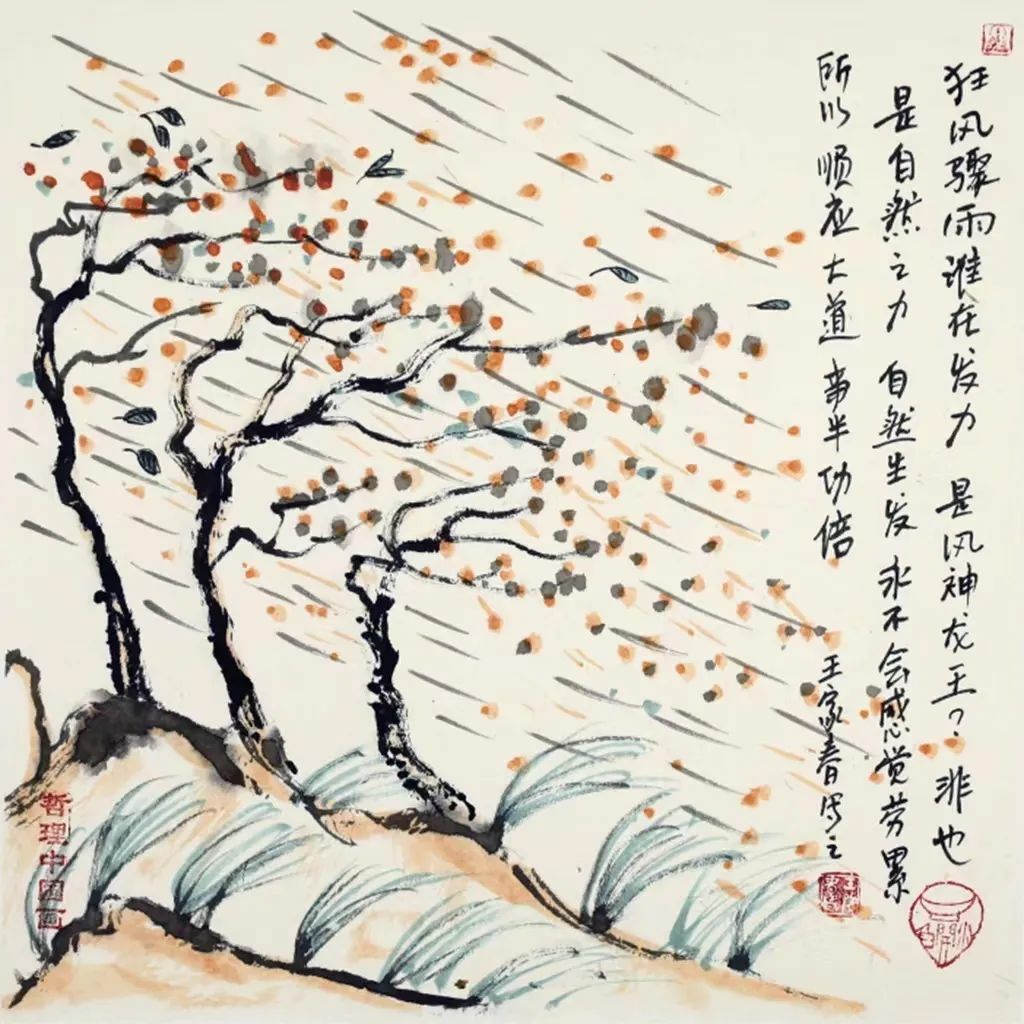 狂风骤雨谁在发力 是风神龙王？非也
是自然之力 自然生发永不会感觉劳累
所以顺应大道 事半功倍
王家春写之
哲理中国画